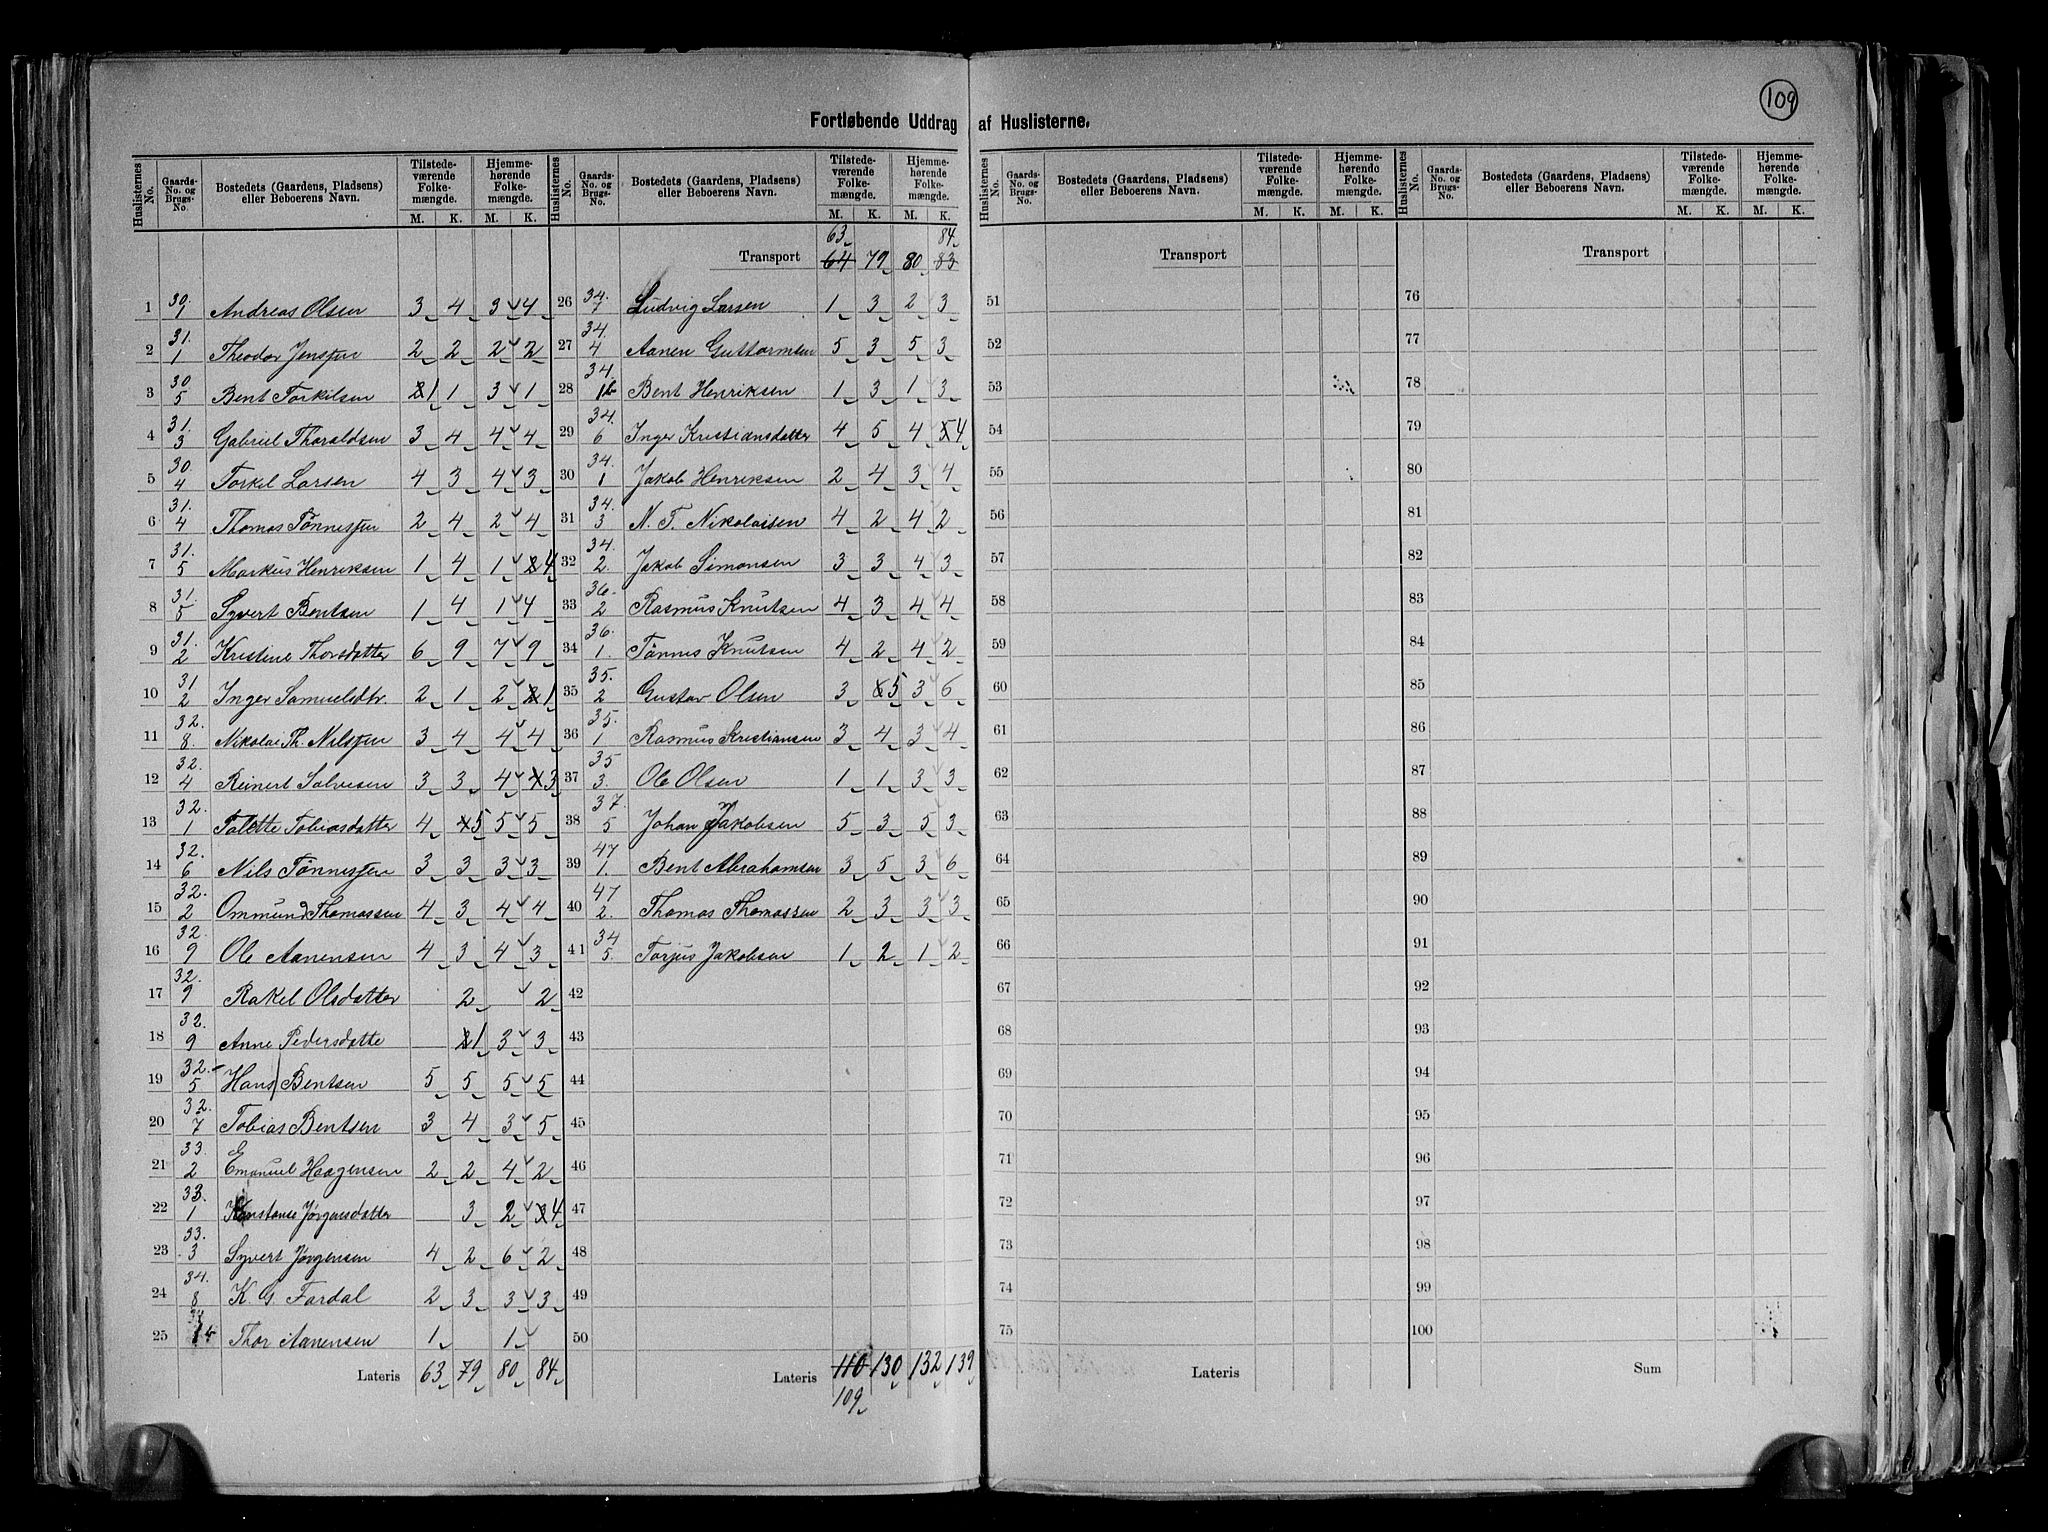 109
Fortløbende Uddrag af Huslisterne.
Huslisternes No. Gaards-No. og Brugs-No. Bostedets (Gaardens, Pladsens) eller Beboerens Navn. Tilstedeværende Folkemængde. M. K. Hjemmehørende Folkemængde. M. K.
1 30. 7 Andreas Olsen 3 4 3 4
2 31. 1 Theodor Jensen 2 2 2 2
3 30 5 Bent Torkilsen 1 1 3 1
4 31. 3 Gabriel Tharaldsen 3 4 4 4
5 30 4 Torkel Larsen 4 3 4 3
6 31. 4 Thomas Tønnesen 2 4 2 4
7 31. 5 Markus Henriksen 1 4 1 4
8 31. 5 Syvert Bentsen 1 4 1 4
9 31. 2 Kristine Thorsdatter 6 9 7 9
10 31 2 Inger Samuelsdtr. 2 1 2 1
11 32. 8. Nikolai Th. Nilsen 3 4 4 4
12 32. 4 Reinert Salvesen 3 3 4 3
13 32. 1 Talette Tobiasdatter 4 5 5 5
14 32. 6 Nils Tønnesen 3 3 3 3
15 32. 2 Ommund Thomassen 4 3 4 4
16 32. 9 Ole Aanensen 4 3 4 3
17 32. 9 Rakel Olsdatter 2 2
18 32. 9 Anne Pedersdatte 1 3 3
19 32. 5 Hans Bentsen 5 5 5 5
20 32. 7 Tobias Bentsen 3 4 3 5
21 33. 2 Emanuel Haagensen 2 2 4 2
22 33. 1 Konstanse Jørgensdatter 3 2 4
23 33. 3 Syvert Jørgensen 4 2 6 2
24 34. 8 K. G. Fardal 2 3 3 3
25 Thor Aanensen 1 1
Lateris 63 79 80 84
Huslisternes No. Gaards-No. og Brugs-No. Bostedets (Gaardens, Pladsens) eller Beboerens Navn. Tilstedeværende Folkemængde. M. K. Hjemmehørende Folkemængde. M. K.
63 84
Transport 64 79 80 83
26 34. 7 Ludvig Larsen 1 3 2 3
27 34. 4 Aanen Guttormsen 5 3 5 3
28 34. 1b Bent Henriksen 1 3 1 3
29 34. 6 Inger Kristiansdatter 4 5 4 4
30 34. 1 Jakob Henriksen 2 4 3 4
31 34. 3 N. T. Nikolaisen 4 2 4 2
32 34. 2. Jakob Simonsen 3 3 4 3
33 36. 2 Rasmus Knutsen 4 3 4 4
34 36. 1. Tønnes Knutsen 4 2 4 2
35 35. 2 Gustav Olsen 3 5 3 6
36 35. 1 Rasmus Kristiansen 3 4 3 4
37 35 3. Ole Olsen 1 1 3 3
38 37. 5 Johan Jakobsen 5 3 5 3
39 47 1. Bent Abrahamsen 3 5 3 6
40 47 2. Thomas Thomassen 2 3 3 3
41 34 5. Torjus Jakobsen 1 2 1 2
42
43
44
45
46
47
48
49
50
Lateris 110 130 132 139
109
Huslisternes No. Gaards-No. og Brugs-No. Bostedets (Gaardens, Pladsens) eller Beboerens Navn. Tilstedeværende Folkemængde. M. K. Hjemmehørende Folkemængde. M. K.
Transport
51
52
53
54
55
56
57
58
59
60
61
62
63
64
65
66
67
68
69
70
71
72
73
74
75
Lateris
Huslisternes No. Gaards-No. og Brugs-No. Bostedets (Gaardens, Pladsens) eller Beboerens Navn. Tilstedeværende Folkemængde. M. K. Hjemmehørende Folkemængde. M. K.
Transport
76
77
78
79
80
81
82
83
84
85
86
87
88
89
90
91
92
93
94
95
96
97
98
99
100
Sum